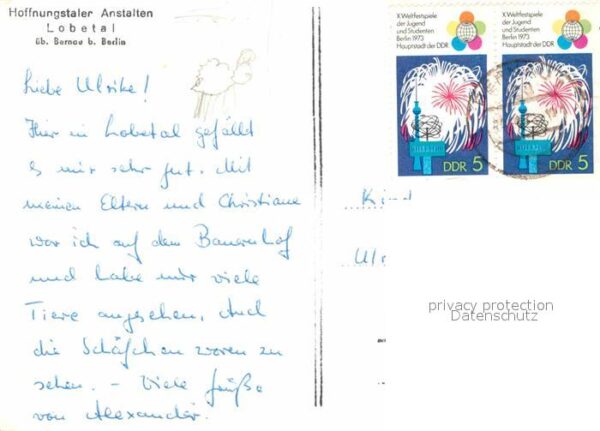 Hoffnungstaler Anstalten
Lobetal
üb. Bernau b. Berlin
Liebe Ulrike!
Hier in Lobetal gefällt
es mir sehr gut. Mit
meinen Eltern und Christiane
war ich auf dem Bauernhof
und habe mir viele
Tiere angesehen. Auch
die Schäfchen waren zu
sehen. – Viele Grüße
von Alexander.
X. Weltfestspiele
der Jugend
und Studenten
Berlin 1973
Hauptstadt der DDR
DDR 5
X. Weltfestspiele
der Jugend
und Studenten
Berlin 1973
Hauptstadt der DDR
DDR 5
Kin
Ul
privacy protection
Datenschutz